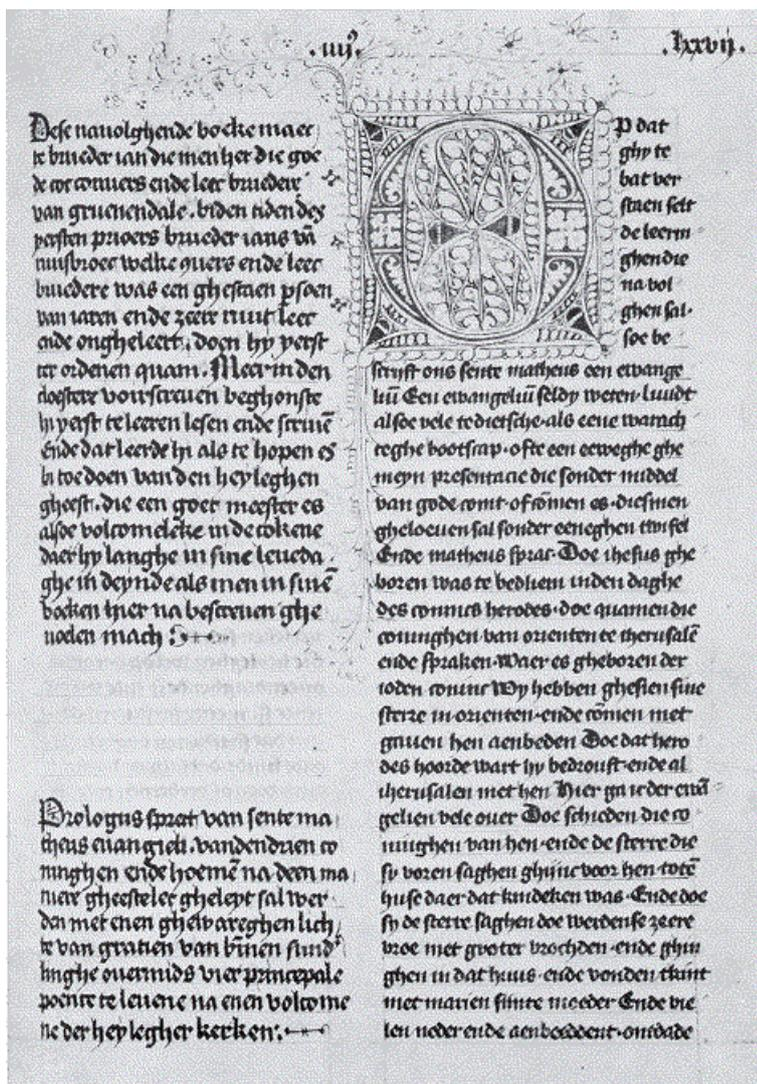 .iiij. .lxxvij.
Dese navolghende boeke maec
te brueder ian die men hiet die goe
de coc convers ende leec bruedere
van gruenendale. biden tiden des
yersten prioers brueder ians vā
ruusbroec welke 9uers ende leec
bruedere was een ghestaen psoen
van iaren ende zeere ruut leec
ende ongheleert. doen hy yerst
ter ordenen quam. Meer in den
cloestere voirscreuen beghonste
hi yerst te leeren lesen ende scriuē
Ende dat leerde hi als te hopen es
bi toe doen van den heyleghen
gheest. die een goet meester es
alsoe volcomeleke in de cokene
daer hy langhe in sine leueda
ghe in deynde als men in sinē
boeken hier na bescreuen ghe
uoelen mach
Prologus sprac van sente ma
theus euangieli. vanden drien co
ninghen ende hoemē na deen ma
niere gheestelec ghelept sal wer
den met enen ghewareghen lich
te van gratien van bīnen sund
linghe ouermids vier principale
poente te leuene na enen volcome
ne der heylegher kerken.
OP dat
ghy te
bat ver
staen selt
de leerin
ghen die
na vol
ghen sal.
soe be
scrijft ons sente matheus een ewange
liū Een ewangeliū seldy weten. luudt
alsoe vele te dietsche. als eene warach
teghe bootscap. ofte een eeweghe ghe
meyn presentacie die sonder middel
van gode comt. of cōmen es. diesmen
gheloeuen sal sonder eeneghen twifel
Ende matheus sprac. Doe ihesus ghe
boren was te bedleem inden daghe
des conincs herodes. doe quamen die
coninghen van orienten te iherusalē
ende spraken. Waer es gheboren der
ioden coninc Wy hebben ghesien sine
sterre in orienten. ende cōmen met
gauen hen aenbeden Doe dat hero
des hoorde wart hy bedrouft. ende al
iherusalen met hen Hier ga ic der ewā
gelien vele ouer Doe schieden die co
ninghen van hen. ende de sterre die
sy voren saghen ghinc voor hen totē
huse daer dat kindeken was. Ende doe
sy de sterre saghen doe werdense zeere
vroe met groter vrochden. ende ghin
ghen in dat huus. ende vonden tkint
met marien siinre moeder Ende vie
len neder ende aenbeedent. ontdade